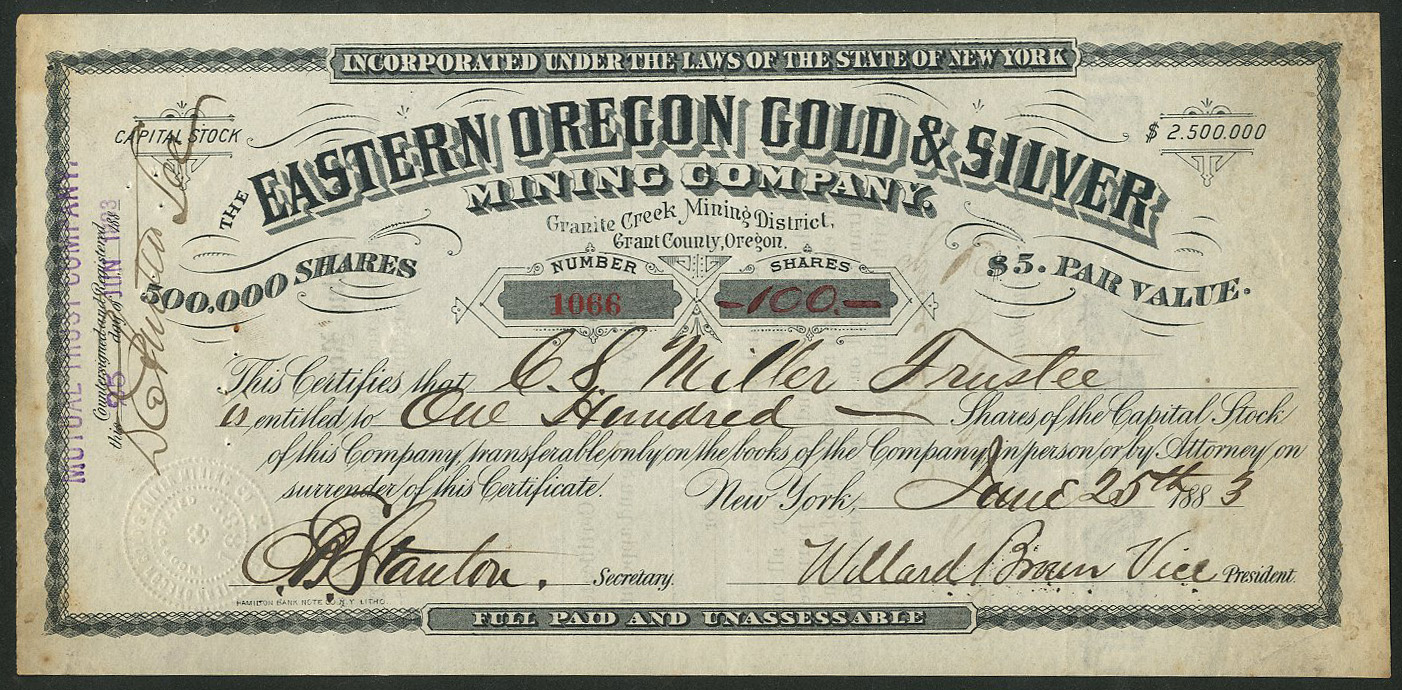 INCORPORATED UNDER THE LAWS OF THE STATE OF NEW YORK
CAPITAL STOCK
$ 2.500.000
THE EASTERN OREGON GOLD & SILVER
MINING COMPANY.
Granite Creek Mining District,
Grant County, Oregon.
500.000 SHARES
$5. PAR VALUE.
NUMBER
1066
SHARES
-100.-
This Certifies that C. S. Miller Trustee
is entitled to One Hundred — Shares of the Capital Stock
of this Company, transferable only on the books of the Company, in person or by Attorney, on
surrender of this Certificate. New York, June 25th 1883
Stanton. Secretary.
Willard Brown Vice President.
HAMILTON BANK NOTE CO. N.Y. LITHO.
FULL PAID AND UNASSESSABLE
MUTUAL TRUST COMPANY.
Countersigned and Registered
this 25 day of JUN 1883 188